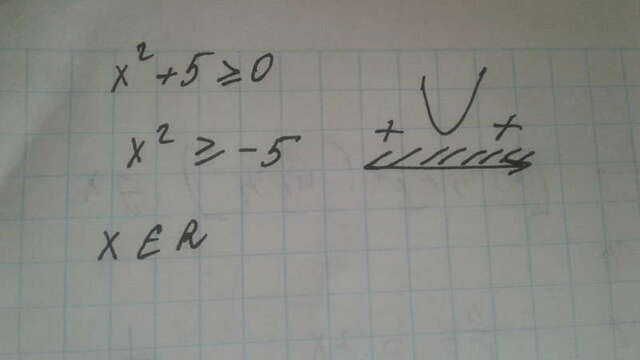 x² + 5 ≥ 0
x² ≥ -5
+ +
x ∈ R